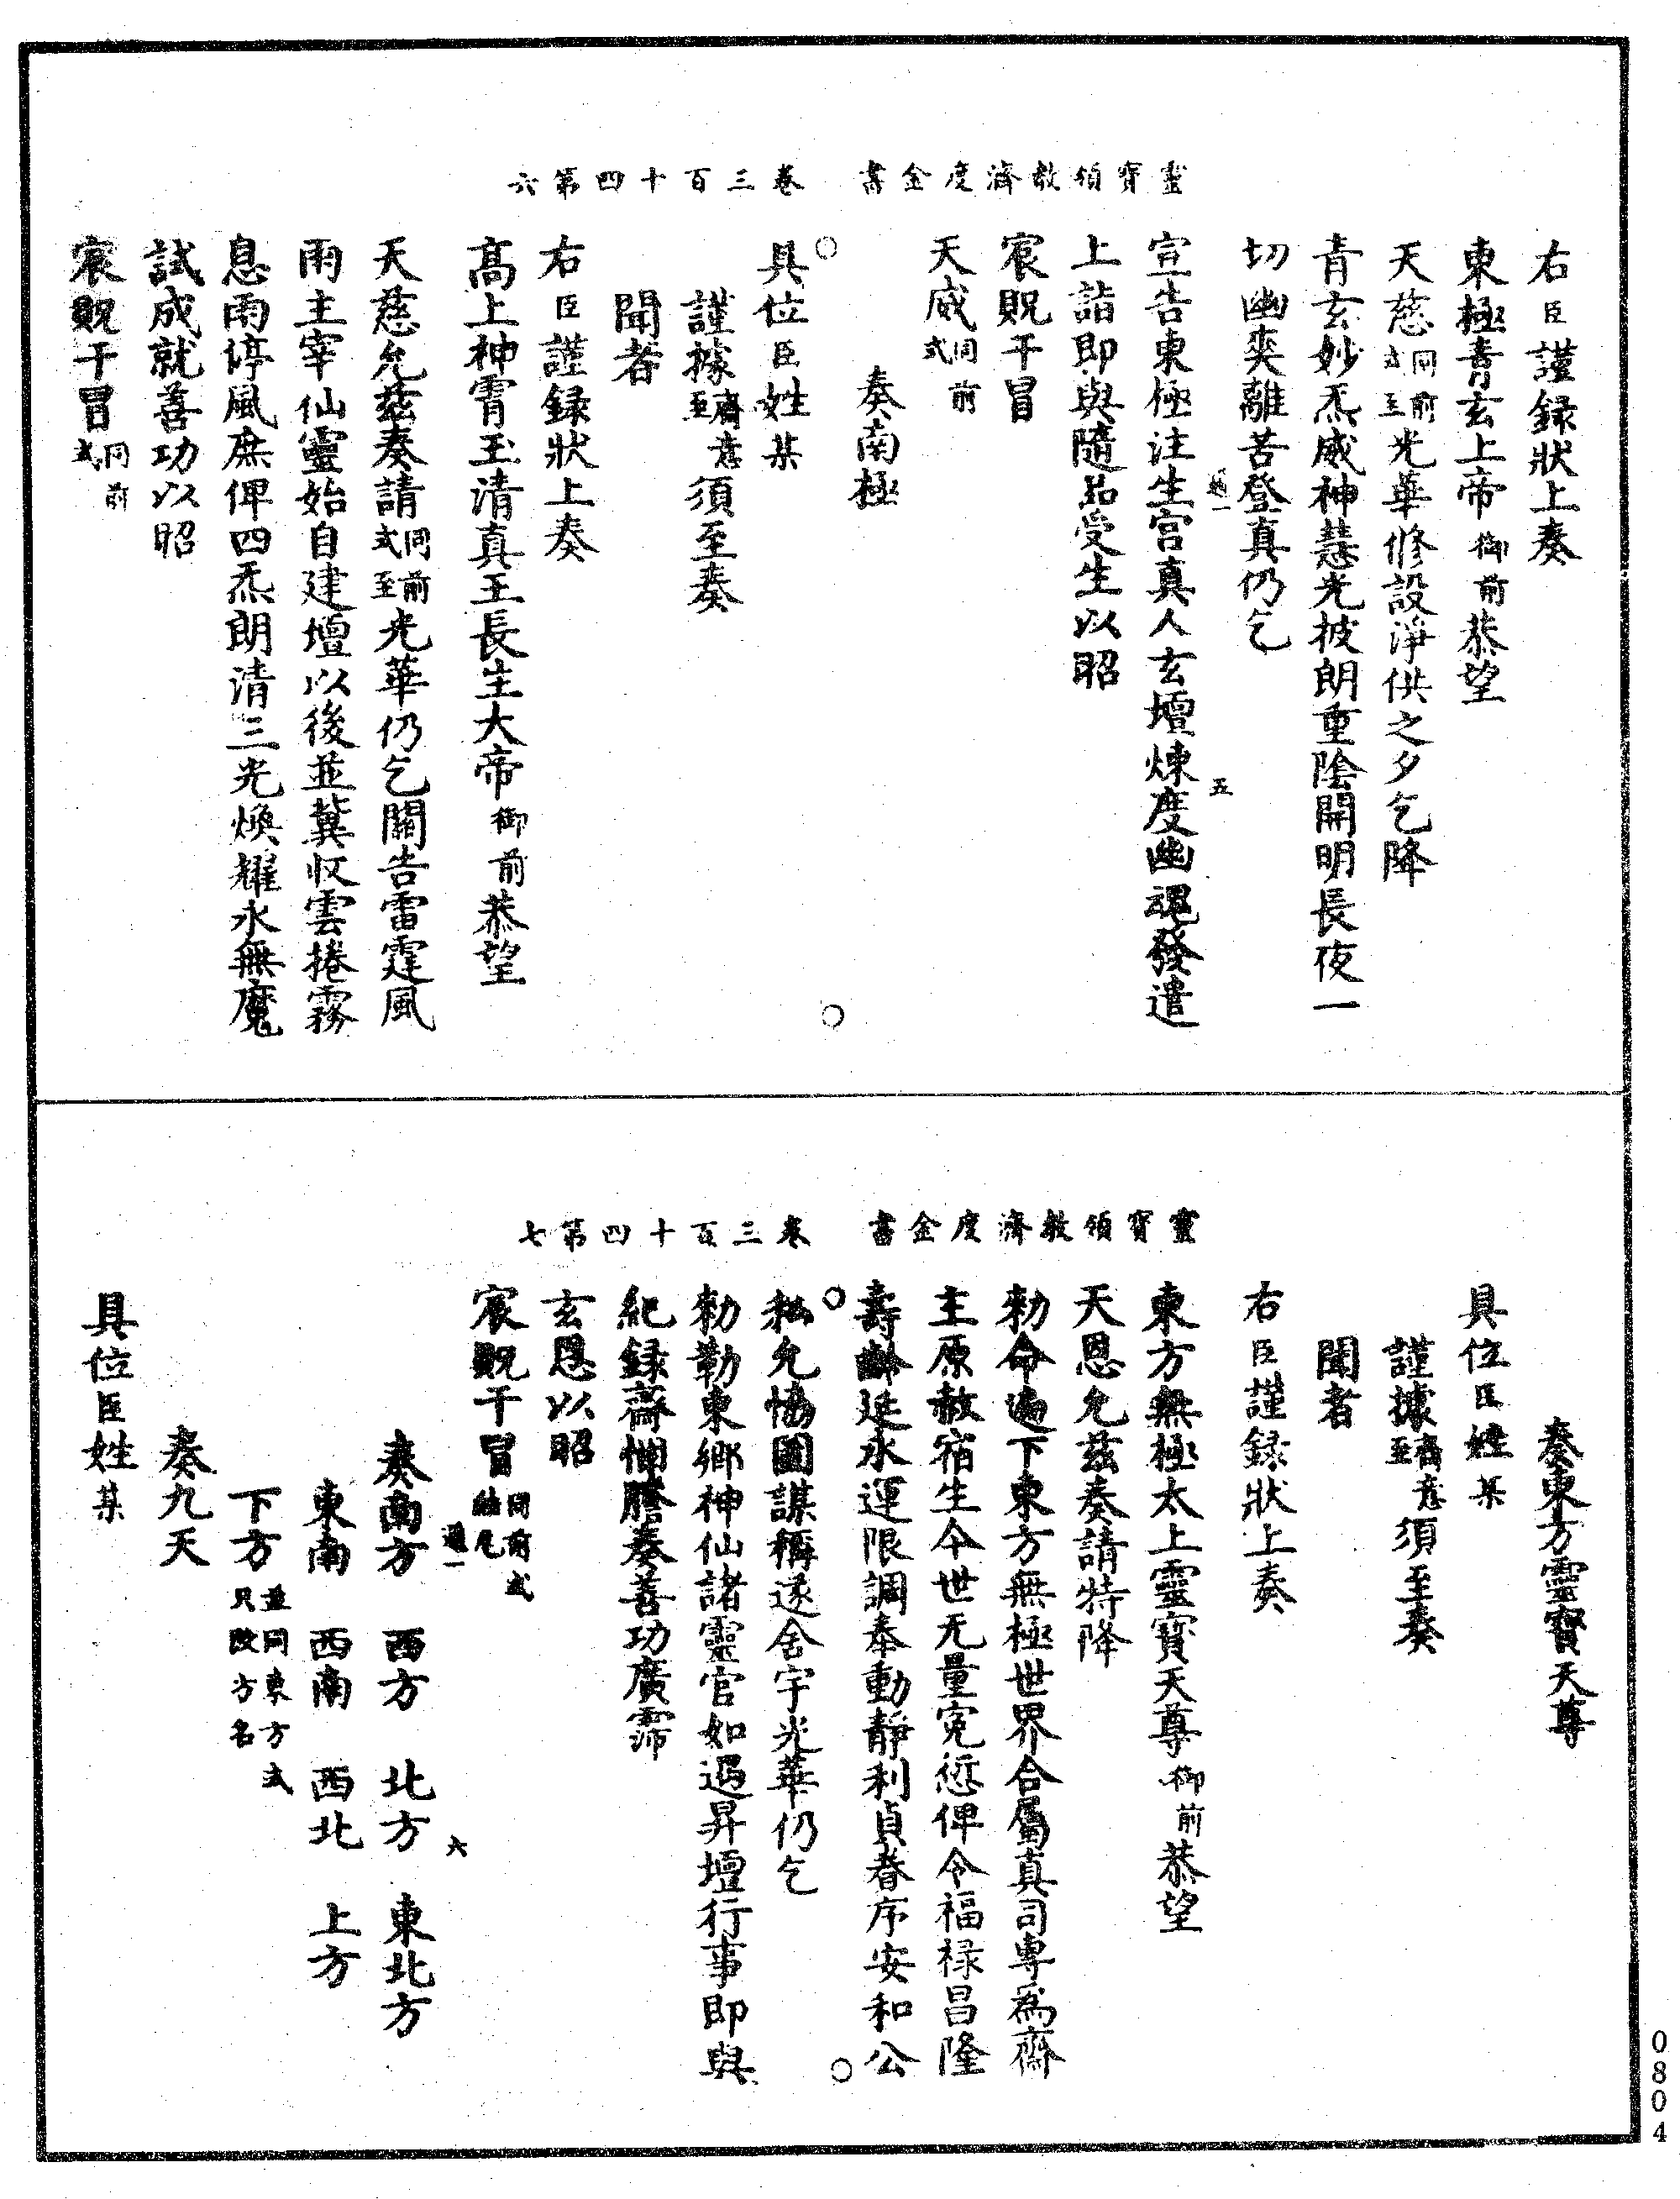 靈寶領教濟度金書　卷三百十四第六
右臣謹録狀上奏
東極青玄上帝御前恭望
天慈同前式至光華修設淨供之夕乞降
青玄妙炁威神慧光披朗重陰開明長夜一
切幽爽離苦登真仍乞
通一　五
宣告東極注生宫真人玄壇煉度幽魂發遣
上詣即與隨品受生以昭
宸貺干冒
天威同前式
奏南極
具位臣姓某
謹據齋意至須至奏
聞者
右臣謹録狀上奏
高上神霄玉清真王長生大帝御前恭望
天慈允兹奏請同前式至光華仍乞關告雷霆風
雨主宰仙靈始自建壇以後並冀收雲捲霧
息雨停風庶俾四炁朗清三光煥耀永無魔
試成就善功以昭
宸貺干冒同前式
靈寶領教濟度金書　卷三百十四第七
奏東方靈寶天尊
具位臣姓某
謹據齋意至須至奏
聞者
右臣謹録狀上奏
東方無極太上靈寶天尊御前恭望
天恩允兹奏請特降
勑命遍下東方無極世界合屬真司專為齋
主原赦宿生今世无量寃愆俾令福禄昌隆
壽齡延永運限調奉動靜利貞眷序安和公
私允愶圖謀稱遂舍宇光華仍乞
勑勒東鄉神仙諸靈官如遇昇壇行事即與
紀録齋悃謄奏善功廣霈
玄恩以昭
宸貺干冒同前式結尾
通一　六
奏南方　西方　北方　東北方
東南　西南　西北　上方
下方並同東方式只改方名
奏九天
具位臣姓某
0804